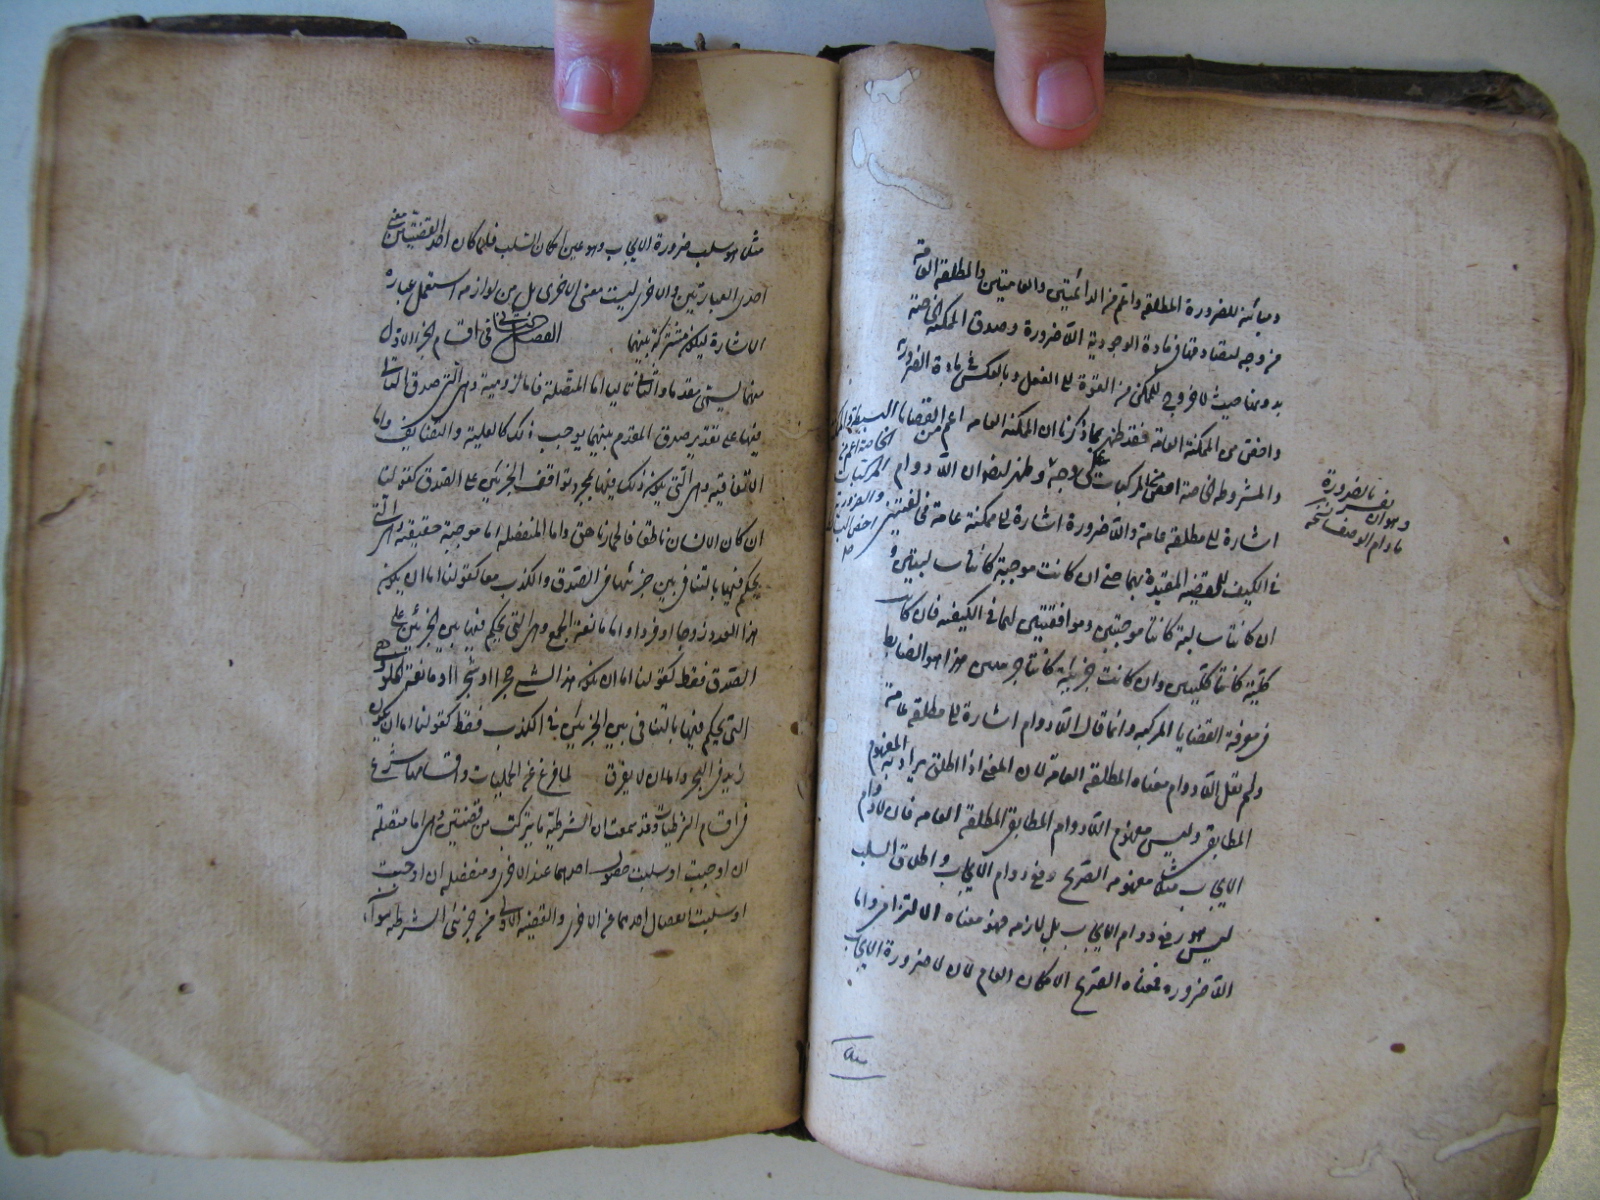 ومباينة للضرورة المطلقة واعم من الدائمتين والعامتين والمطلقة العامة
من وجه لتصادقها في مادة الوجودية اللاضرورة وصدق الممكنة الخاصة
بدونها حيث لا خروج للممكن من القوة الى الفعل وبالعكس في مادة الضرورة
واخص من الممكنة العامة فقد ظهر مما ذكرنا ان الممكنة العامة اعم من القضايا البسيطة
والمشروطة الخاصة اخص المركبات على وجه وظهر ايضا ان اللادوام
اشارة الى مطلقة عامة واللاضرورة اشارة الى ممكنة عامة مخالفتين
في الكيف للقضية المقيدة بهما حتى ان كانت موجبة كانتا سالبتين و
ان كانت سالبة كانتا موجبتين وموافقتين لها في الكمية فان كانت
كلية كانتا كليتين وان كانت جزئية كانتا جزئيتين هذا هو الضابط
في معرفة القضايا المركبة وانما قال اللادوام اشارة الى مطلقة عامة
ولم يقل اللادوام معناه المطلقة العامة لان المعنى اذا اطلق يراد به المفهوم
المطابقي وليس مفهوم اللادوام المطابقي المطلقة العامة فان لا دوام
الايجاب مثلا مفهومه الصريح رفع دوام الايجاب واطلاق السلب
ليس هو رفع دوام الايجاب بل لازمه فهو معناه الالتزامي واما
اللاضرورة فمعناه الصريح الامكان العام لان لا ضرورة الايجاب
وهو ان بالضرورة
ما دام الوصف
مثلا هو سلب ضرورة الايجاب وهو عين امكان السلب فلما كان احد القضيتين معنى
احدى العبارتين والاخرى ليست معنى الاخرى بل من لوازمه استعمل عبارة
الاشارة ليكون مشتركة بينهما الفصل الثاني في اقسام الجزء الاول
منهما يسمى مقدما والثاني تاليا اما المتصلة فاما لزومية وهي التي صدق التالي
فيها على تقدير صدق المقدم بينهما يوجب ذلك كالعلية والتضايف واما
الاتفاقية وهي التي يكون ذلك فيها بمجرد توافق الجزئين على الصدق كقولنا
ان كان الانسان ناطقا فالحمار ناهق واما المنفصلة اما موجبة حقيقية وهي التي
يحكم فيها بالتنافي بين جزئيها في الصدق والكذب معا كقولنا اما ان يكون
هذا العدد زوجا او فردا واما مانعة الجمع وهي التي يحكم فيها بين الجزئين على
الصدق فقط كقولنا اما ان يكون هذا الشيء حجرا او شجرا او مانعة الخلو وهي
التي يحكم فيها بالتنافي بين الجزئين في الكذب فقط كقولنا اما ان يكون
زيد في البحر واما ان لا يغرق لما فرغ عن الحمليات واقسامها شرع
في اقسام الشرطيات وقد سمعت ان الشرطية ما يتركب من قضيتين وهي اما متصلة
ان اوجبت او سلبت حصول احديهما عند الاخرى ومنفصلة ان اوجبت
او سلبت انفصال احديهما عن الاخرى والقضية الاولى من جزئي الشرطية سواء